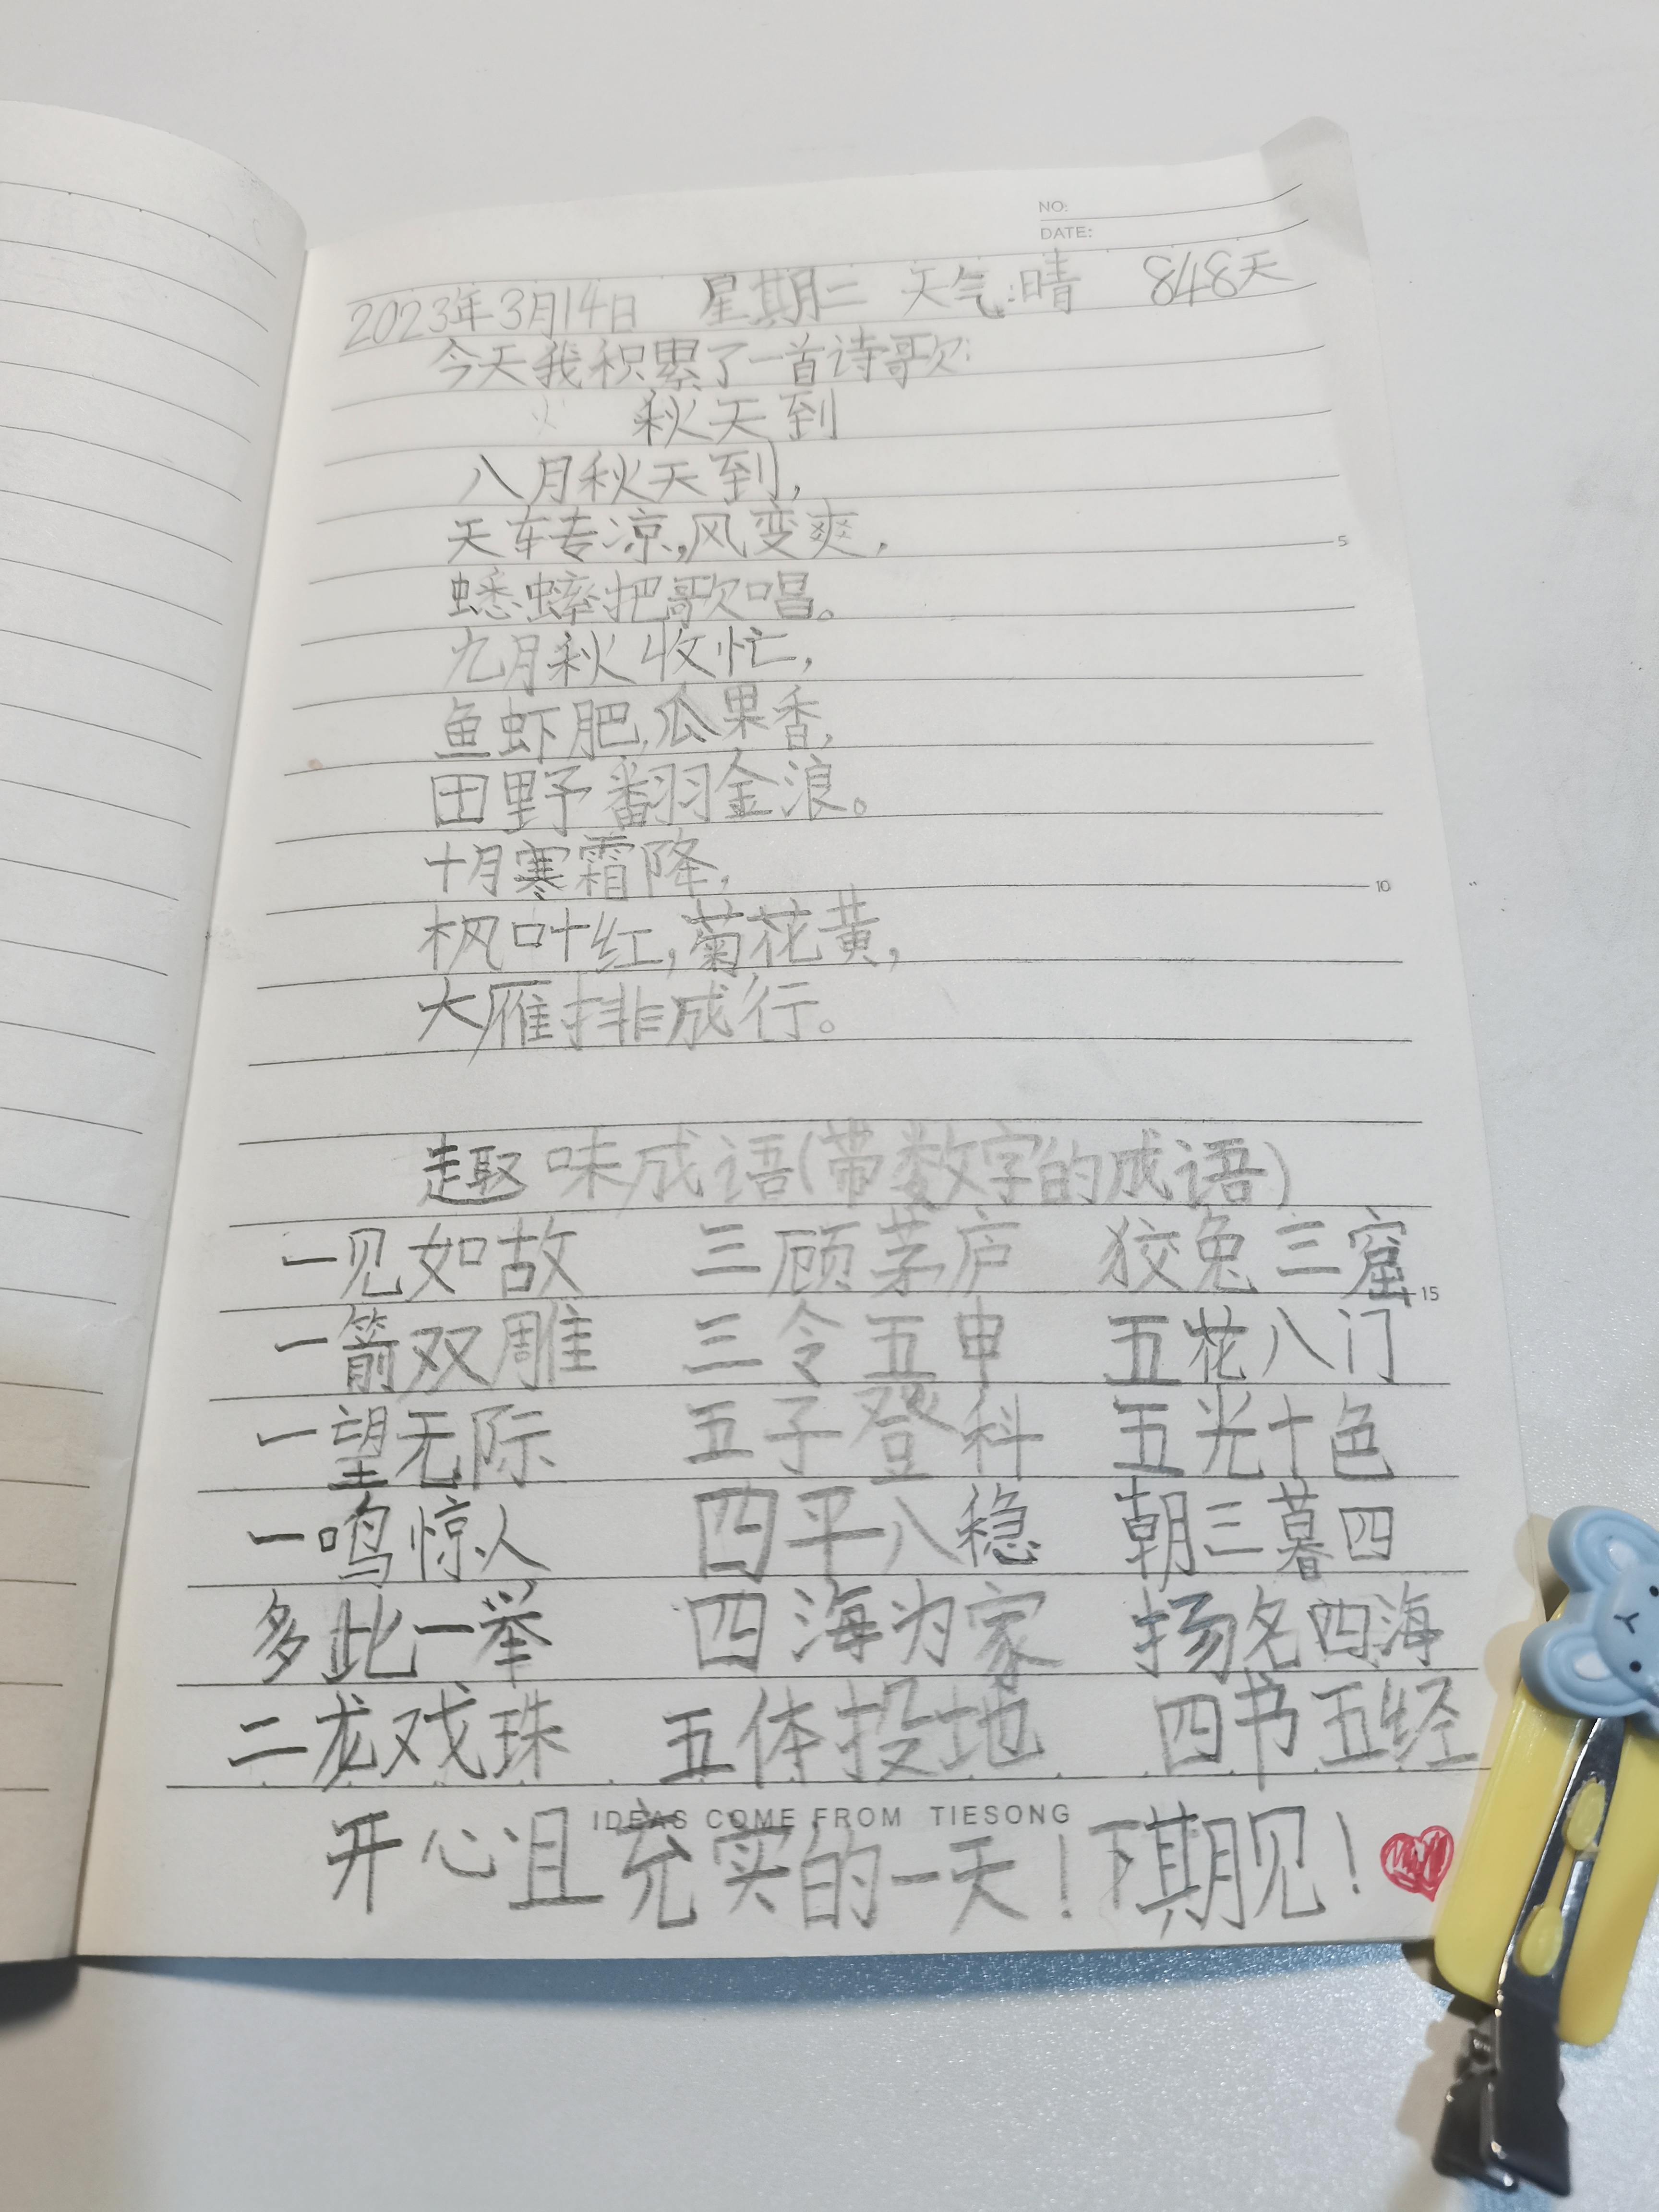 NO:
DATE:
2023年3月14日 星期二 天气:晴 848天
今天我积累了一首诗歌:
秋天到
八月秋天到,
天转凉,风变爽,
蟋蟀把歌唱。
九月秋收忙,
鱼虾肥,瓜果香,
田野翻金浪。
十月寒霜降,
枫叶红,菊花黄,
大雁排成行。
趣味成语(带数字的成语)
一见如故 三顾茅庐 狡兔三窟
一箭双雕 三令五申 五花八门
一望无际 五子登科 五光十色
一鸣惊人 四平八稳 朝三暮四
多此一举 四海为家 扬名四海
二龙戏珠 五体投地 四书五经
IDEAS COME FROM TIESONG
开心且充实的一天!下期见!
5
10
15